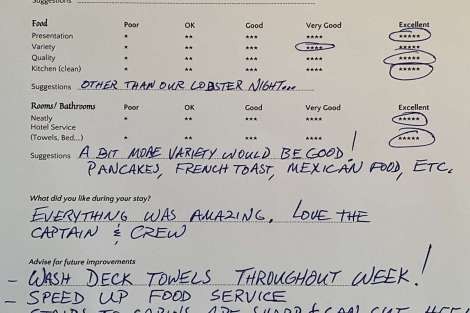 Suggestions
Food Poor OK Good Very Good Excellent
Presentation * ** *** **** *****
Variety * ** *** **** *****
Quality * ** *** **** *****
Kitchen (clean) * ** *** **** *****
Suggestions OTHER THAN OUR LOBSTER NIGHT...
Rooms/ Bathrooms Poor OK Good Very Good Excellent
Neatly * ** *** **** *****
Hotel Service
(Towels, Bed...) * ** *** **** *****
Suggestions A BIT MORE VARIETY WOULD BE GOOD!
PANCAKES, FRENCH TOAST, MEXICAN FOOD, ETC.
What did you like during your stay?
EVERYTHING WAS AMAZING. LOVE THE
CAPTAIN & CREW
Advise for future improvements
- WASH DECK TOWELS THROUGHOUT WEEK!
- SPEED UP FOOD SERVICE
STAIRS TO CABINS ARE SHARP & CAN CUT